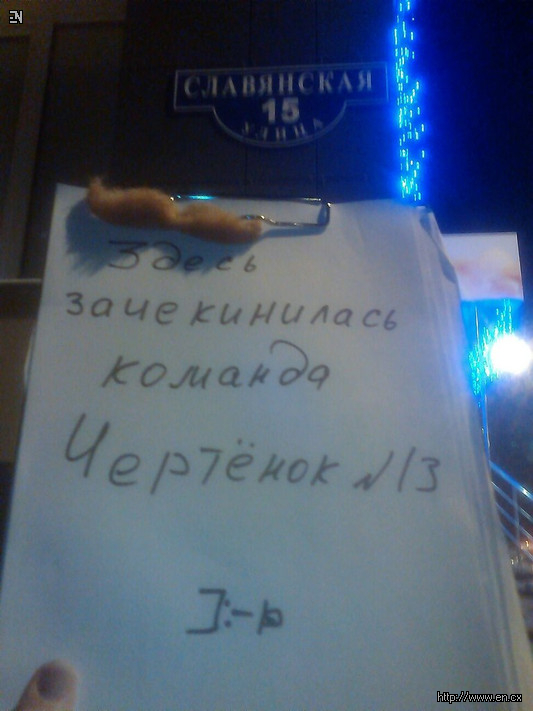 EN
СЛАВЯНСКАЯ
15
УЛИЦА
Здесь
зачекинилась
команда
Чертёнок №13
]:-р
http://www.en.cx